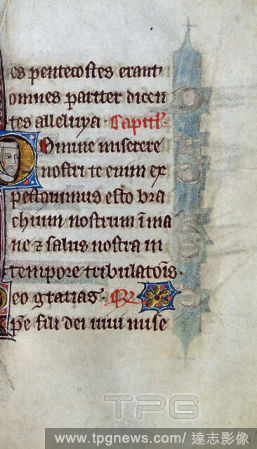 es pentecostes erant
omnes pariter dicen
tes alleluya. Capitl'.
Domine miserere
nostri te enim ex
pectauimus esto bra
chium nostrum ī ma
ne ⁊ salus nostra in
tempore tribulatōis.
Deo gratias. R
xp̄e fili dei uiui mise
TPG
www.tpgnews.com/ 達志影像